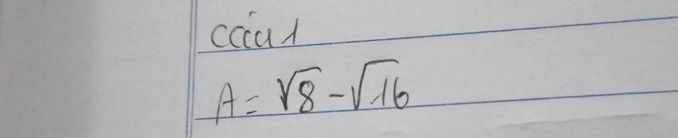 câu 1
A = √8 - √16